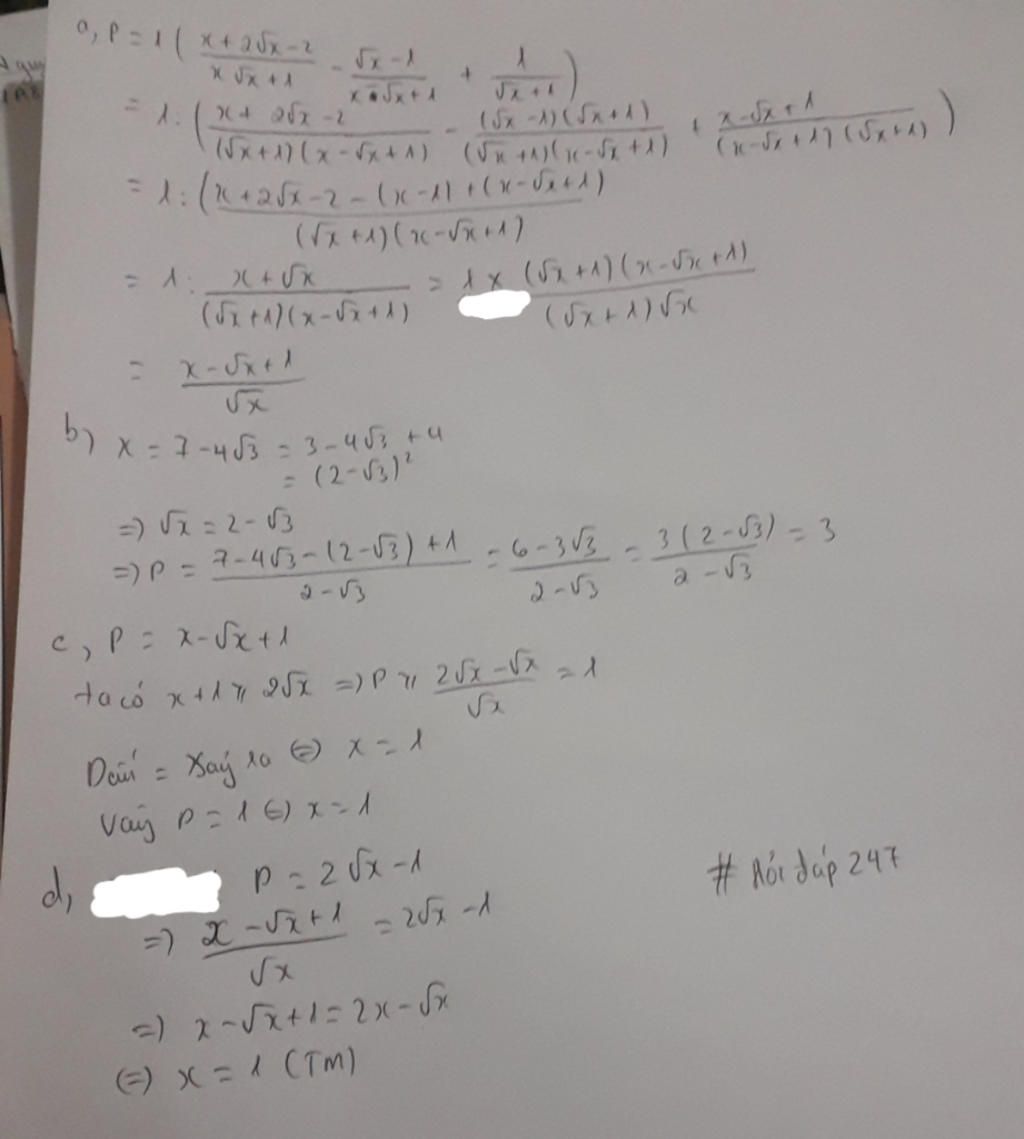 a, P = 1 ( (x + 2√x - 2)/(x√x + 1) - (√x - 1)/(x - √x + 1) + 1/(√x + 1) )
= 1 : ( (x + 2√x - 2)/((√x + 1)(x - √x + 1)) - ((√x - 1)(√x + 1))/((√x + 1)(x - √x + 1)) + (x - √x + 1)/((x - √x + 1)(√x + 1)) )
= 1 : ( (x + 2√x - 2 - (x - 1) + (x - √x + 1))/((√x + 1)(x - √x + 1))
= 1 : (x + √x)/((√x + 1)(x - √x + 1)) = 1 × ((√x + 1)(x - √x + 1))/((√x + 1)√x)
= (x - √x + 1)/√x
b) x = 7 - 4√3 = 3 - 4√3 + 4
= (2 - √3)²
=> √x = 2 - √3
=> P = (7 - 4√3 - (2 - √3) + 1)/(2 - √3) = (6 - 3√3)/(2 - √3) = (3(2 - √3))/(2 - √3) = 3
c, P = x - √x + 1
ta có x + 1 ≥ 2√x => P ≥ (2√x - √x)/√x = 1
Dấu = xảy ra <=> x = 1
Vậy P = 1 <=> x = 1
d, P = 2√x - 1
=> (x - √x + 1)/√x = 2√x - 1
=> x - √x + 1 = 2x - √x
<=> x = 1 (TM)
# Hỏi đáp 247